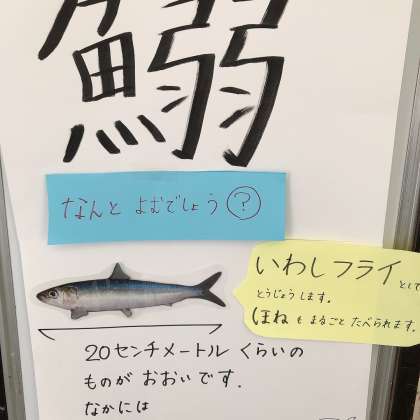 鰯
なんと よむでしょう?
いわしフライとして
とうじょうします。
ほねも まるごと たべられます。
20センチメートル くらいの
ものが おおいです。
なかには